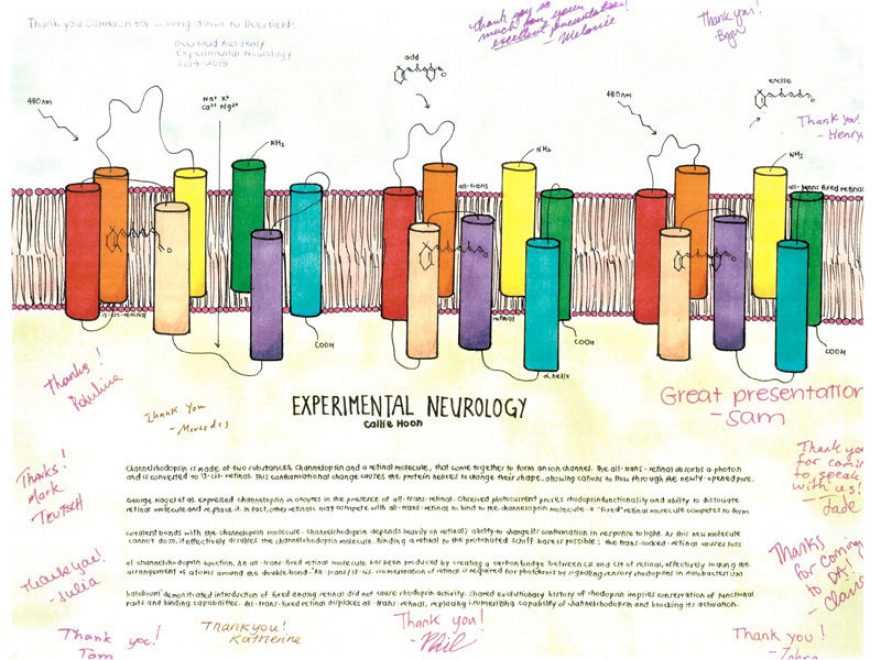 Thank you Cameron for coming down to Deerfield!
Deerfield Academy
Experimental Neurology
2014-2015
thank you so
much for your
excellent presentation!
- Melanie
Thank you!
Thank you!
- Henry
480nm
Na+ K+
Ca2+ Mg2+
NH2
add
480nm
excise
NH2
all-trans
NH2
all-trans fixed retinal
13-cis-retinal
retinal
COOH
COOH
α helix
COOH
Thanks!
Paulina
Thank you
- Mercedes
EXPERIMENTAL NEUROLOGY
Callie Hoon
Great presentation
- Sam
Channelrhodopsin is made of two substances, channelopsin and a retinal molecule, that come together to form an ion channel. The all-trans-retinal absorbs a photon
and is converted to 13-cis-retinal. This conformational change causes the protein helices to change their shape, allowing cations to flow through the newly-opened pore.
George Nagel et al. expressed channelopsin in oocytes in the presence of all-trans-retinal. Observed photocurrent proves rhodopsin functionality and ability to dissociate
retinal molecule and replace it. In fact, other retinals may compete with all-trans-retinal to bind to the channelopsin molecule. A "fixed" retinal molecule competed to form
covalent bonds with the channelopsin molecule. Channelrhodopsin depends heavily on retinal's ability to change its conformation in response to light. As this new molecule
cannot do so, it effectively disables the channelrhodopsin molecule. Binding a retinal to the protonated schiff base is possible; the trans-locked-retinal causes loss
of channelrhodopsin function. An all-trans-fixed retinal molecule has been produced by creating a carbon bridge between and of retinal, effectively fixing the
arrangement of atoms around the double-bond. "All-trans/13-cis-isomerization of retinal is required for phototaxis by signaling sensory rhodopsins in halobacterium
halobium" demonstrated introduction of fixed ending retinal did not cause rhodopsin activity. Shared evolutionary history of rhodopsin implies conservation of functional
parts and binding capabilities. All-trans-fixed retinal displaces all-trans-retinal, replacing isomerizing capability of channelrhodopsin and blocking its activation.
Thanks!
Mark
Teutsch
Thank you
for coming
to speak
with us!
- Jade
Thank you!
- Julia
Thanks
for coming
to DA!
Thank you!
Tom
Thank you!
Katherine
Thank you!
Phil
Thank you!